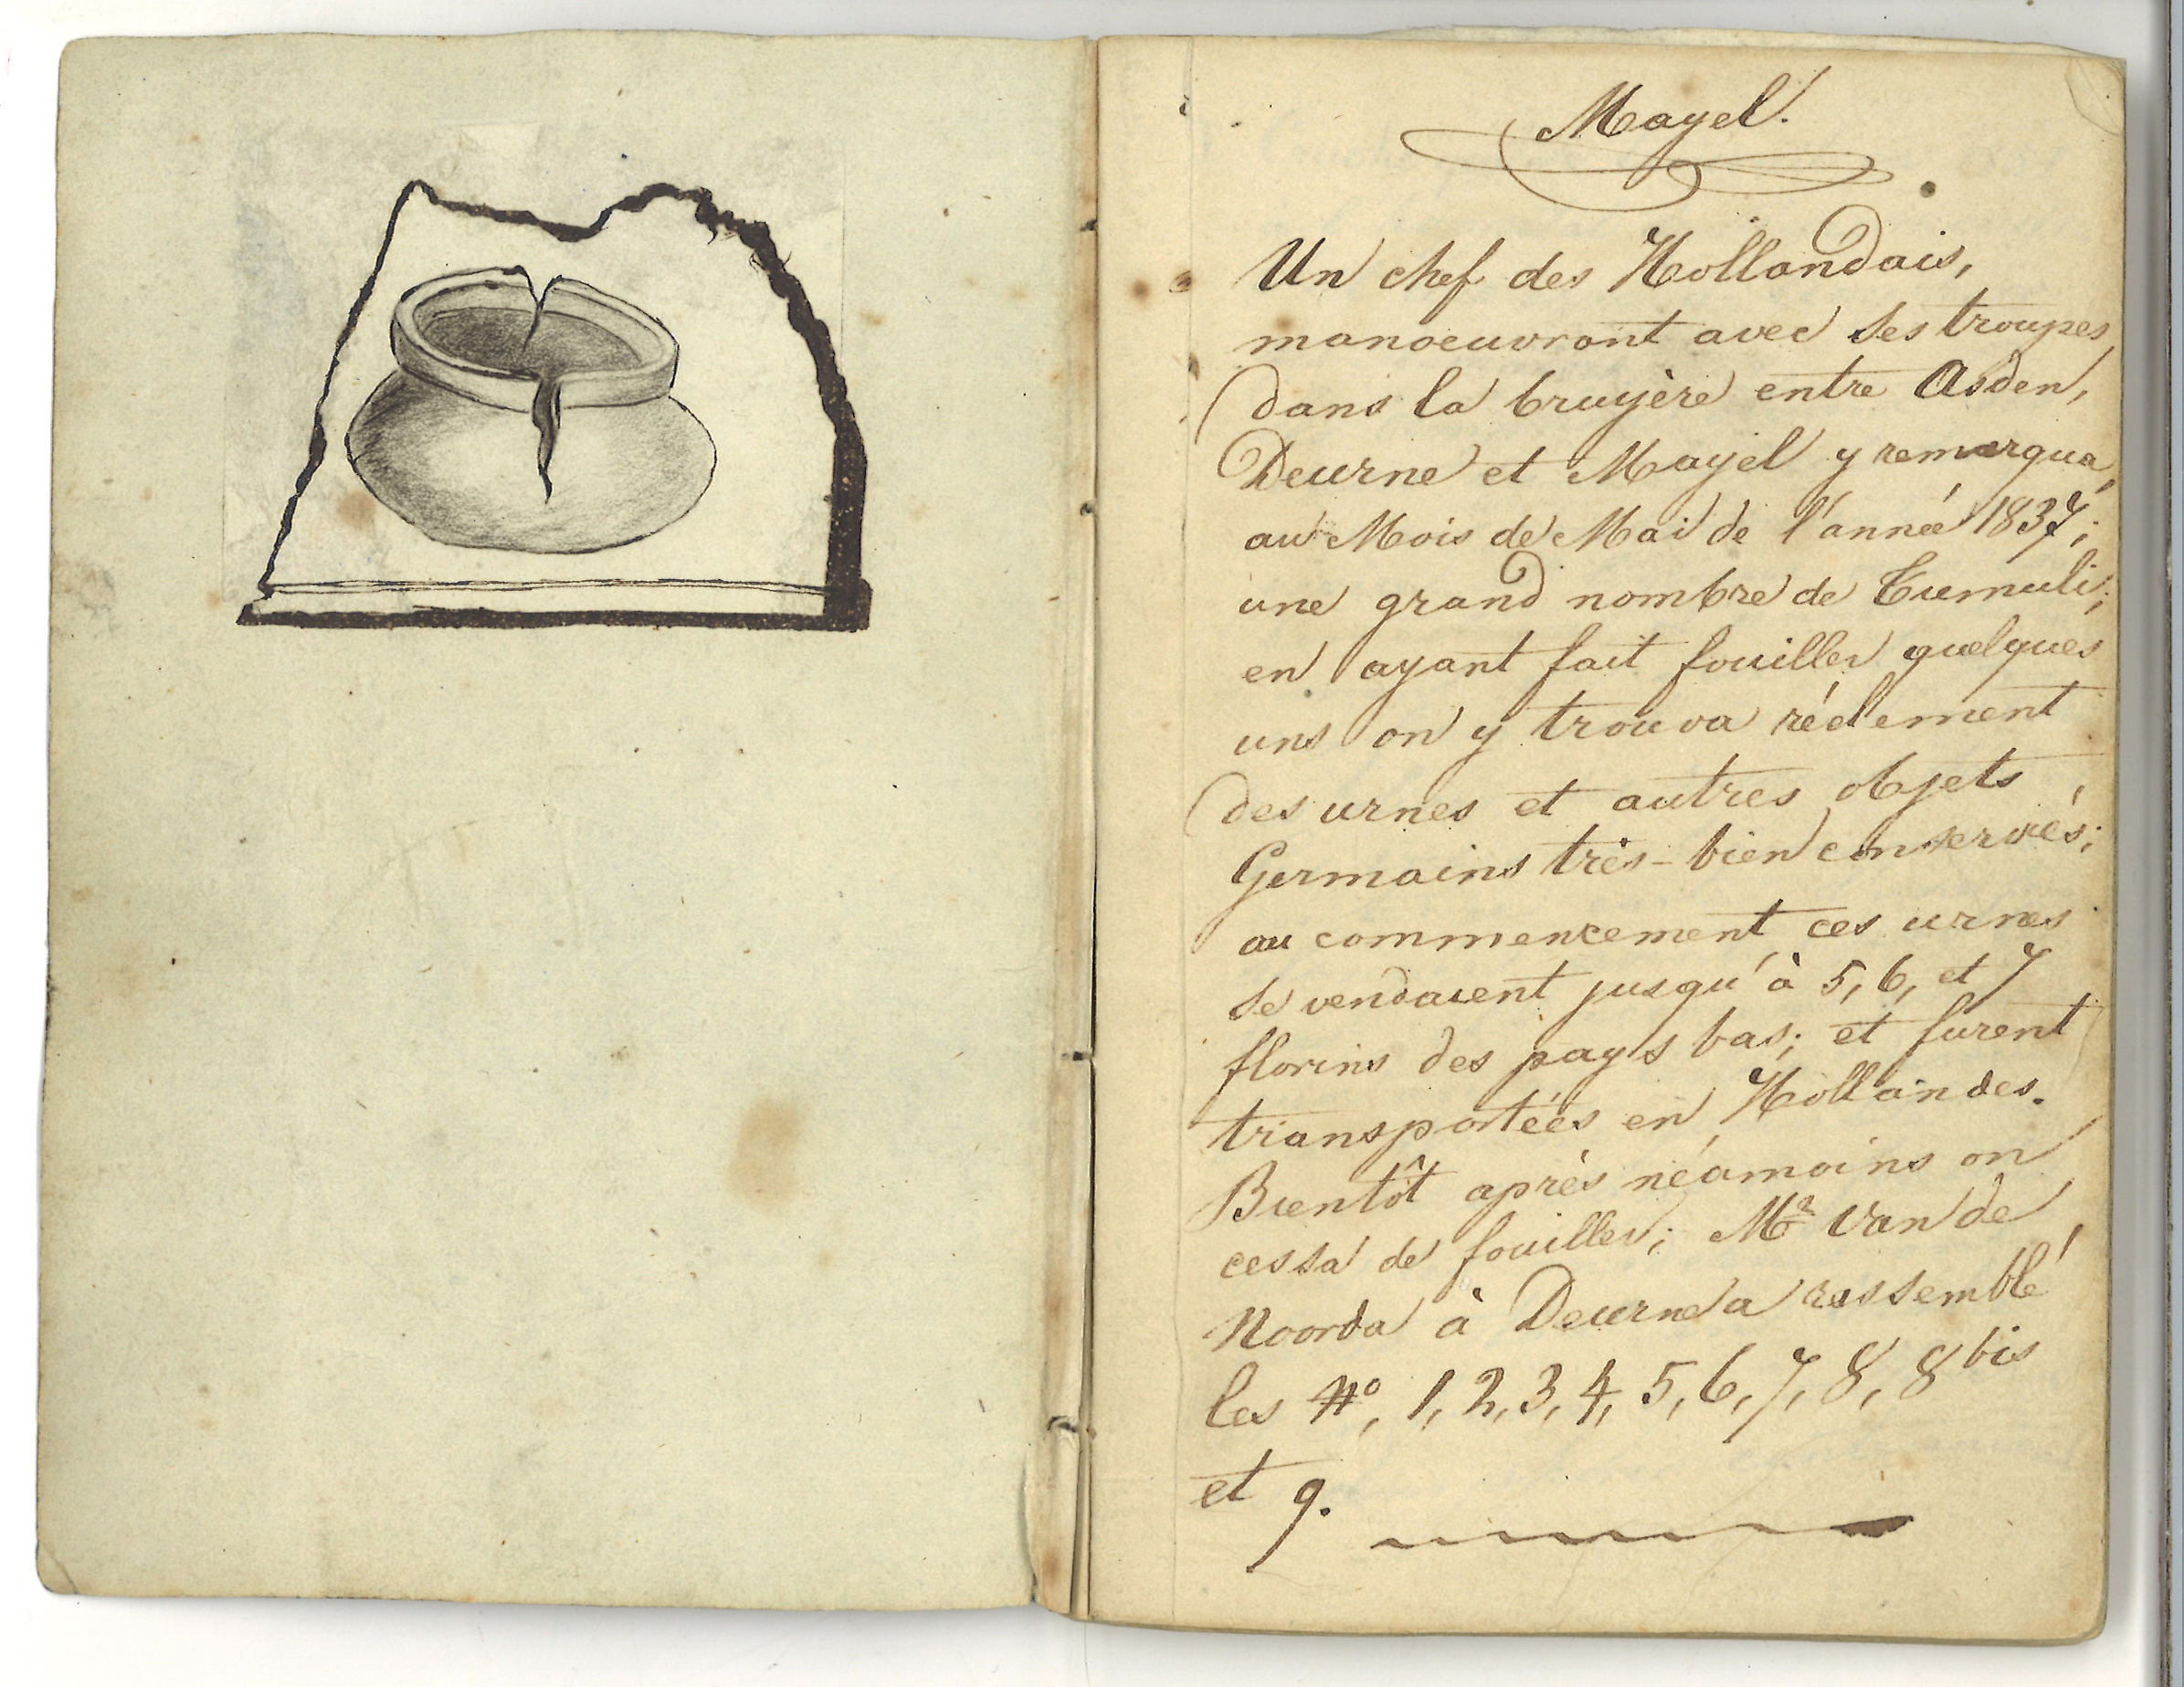 Mayel.
Un chef des Hollandais,
manoeuvrant avec ses troupes
dans la bruyère entre Asden,
Deurne et Mayel y remarqua,
au Mois de Mai de l'année 1837;
une grand nombre de Tumuli;
en ayant fait fouiller quelques
uns on y trouva réelement
des urnes et autres objets
Germains très-bien conservés;
au commencement ces urnes
se vendaient jusqu'à 5, 6, et 7
florins des pays bas; et furent
transportées en Hollandes.
Bientôt après néamoins on
cessa de fouiller; Mr Van de
Noorda à Deurne a rassemblé
les No, 1, 2, 3, 4, 5, 6, 7, 8, 8 bis
et 9.